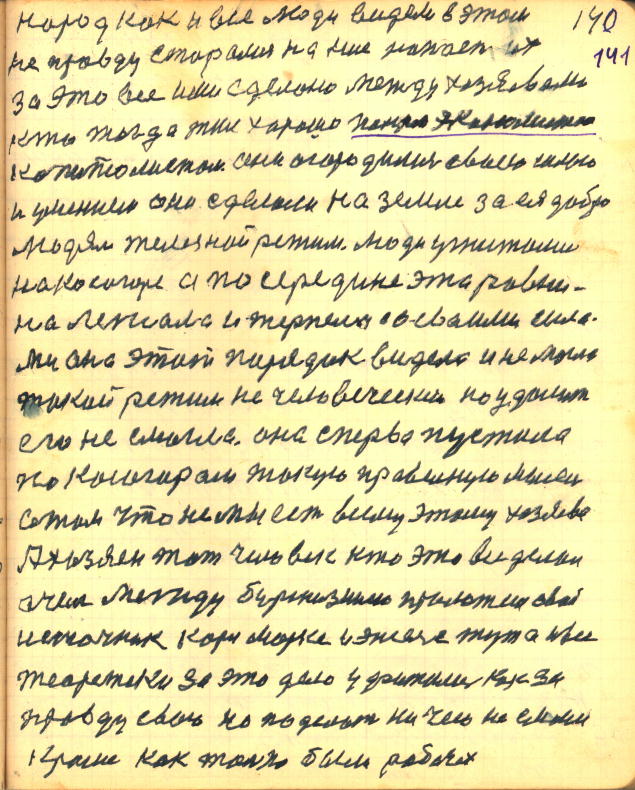 народ как и все люди видел в этом 140
не правду старался на них напает их 141
за это все ими сделано между хозяевами
кто тогда жил хорошо
копитолистом они огородились своею силою
и умением они сделали на земле за ея добро
людям железной режим. люди ужитоми
на косогоре а по середине эта равни-
на лежала и терпела со своими сила-
ми она этот порядок видела и не могла
такой режим не человеческий но удалит
его не смогла. она сперва пустила
по косогорам такую правильную мысл
о том что не мы ест всему этому хозяева
А хозяен тот человек кто это все делал
а чем между буржизными проложил свой
источник Карл Маркс и Энгелс тут а и все
теоретеки за это дело ухватились как за
правду свою но поделат ни чего не смогли
Кроме как только были рабочих